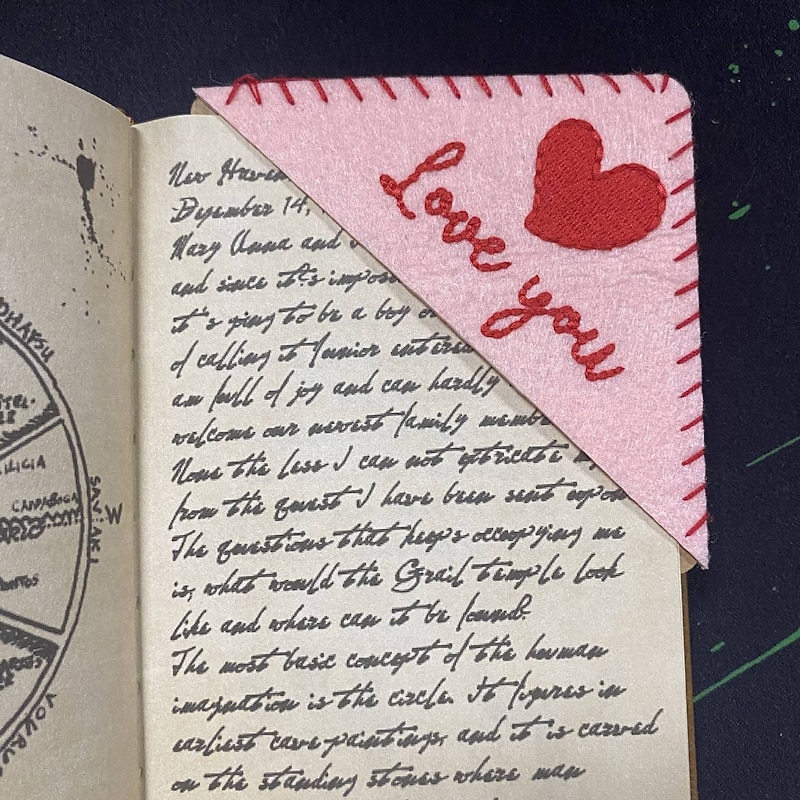 Love you
New Haven
December 14,
Mary Anna and
and since it's impos
it's going to be a boy
of calling it Junior
am full of joy and can hardly
welcome our newest family membe
None the less I can not extricate
from the quest I have been sent upon
The questions that keeps occupying me
is, what would the Grail temple look
like and where can it be found?
The most basic concept of the human
imagination is the circle. It figures in
earliest cave paintings, and it is carved
on the standing stones where man
CILICIA
W